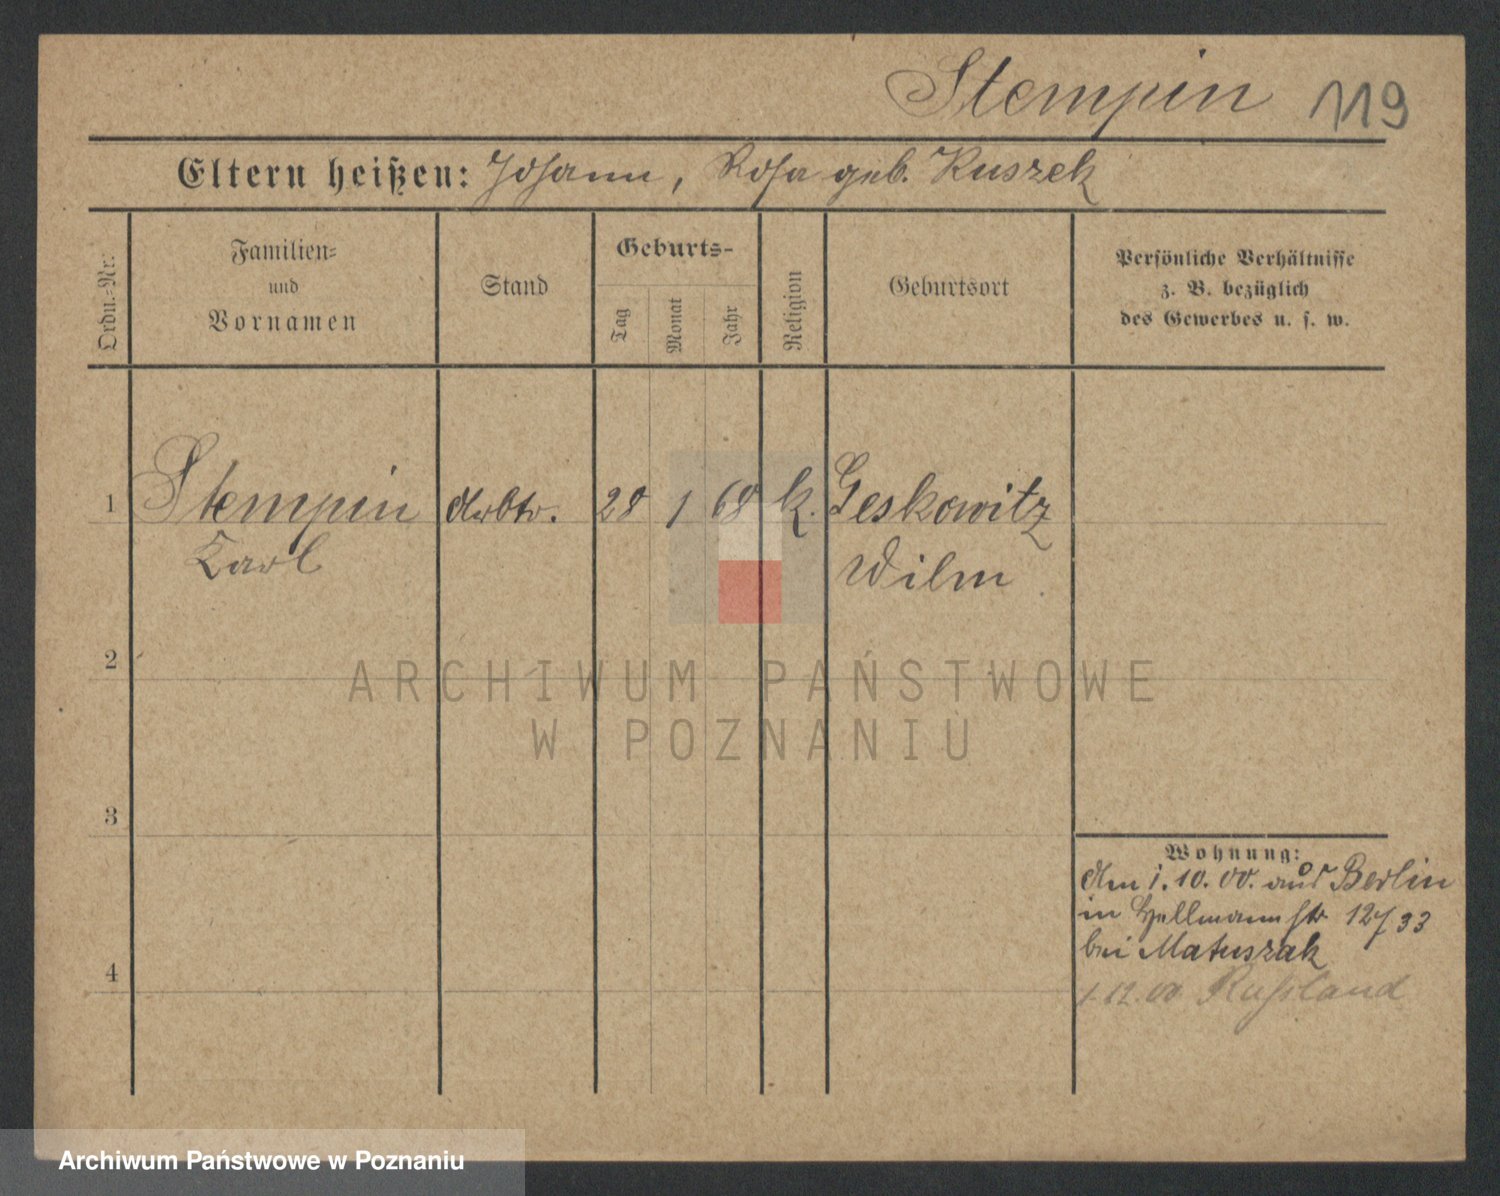 Stempin 119
Eltern heißen: Johann, Rosa geb. Kuszek
Ordn.-Nr.
Familien-
und
Vornamen
Stand
Geburts-
Tag
Monat
Jahr
Religion
Geburtsort
Persönliche Verhältnisse
z. B. bezüglich
des Gewerbes u. s. w.
1 Stempin Arbtr. 28 1 68 k. Geskowitz
Karl Wilm
2
ARCHIWUM PAŃSTWOWE
W POZNANIU
3
Wohnung:
Am 1.10.00. aus Berlin
in Hellmannstr 127 33
bei Matuszak
4
1.12.00 Russland
Archiwum Państwowe w Poznaniu